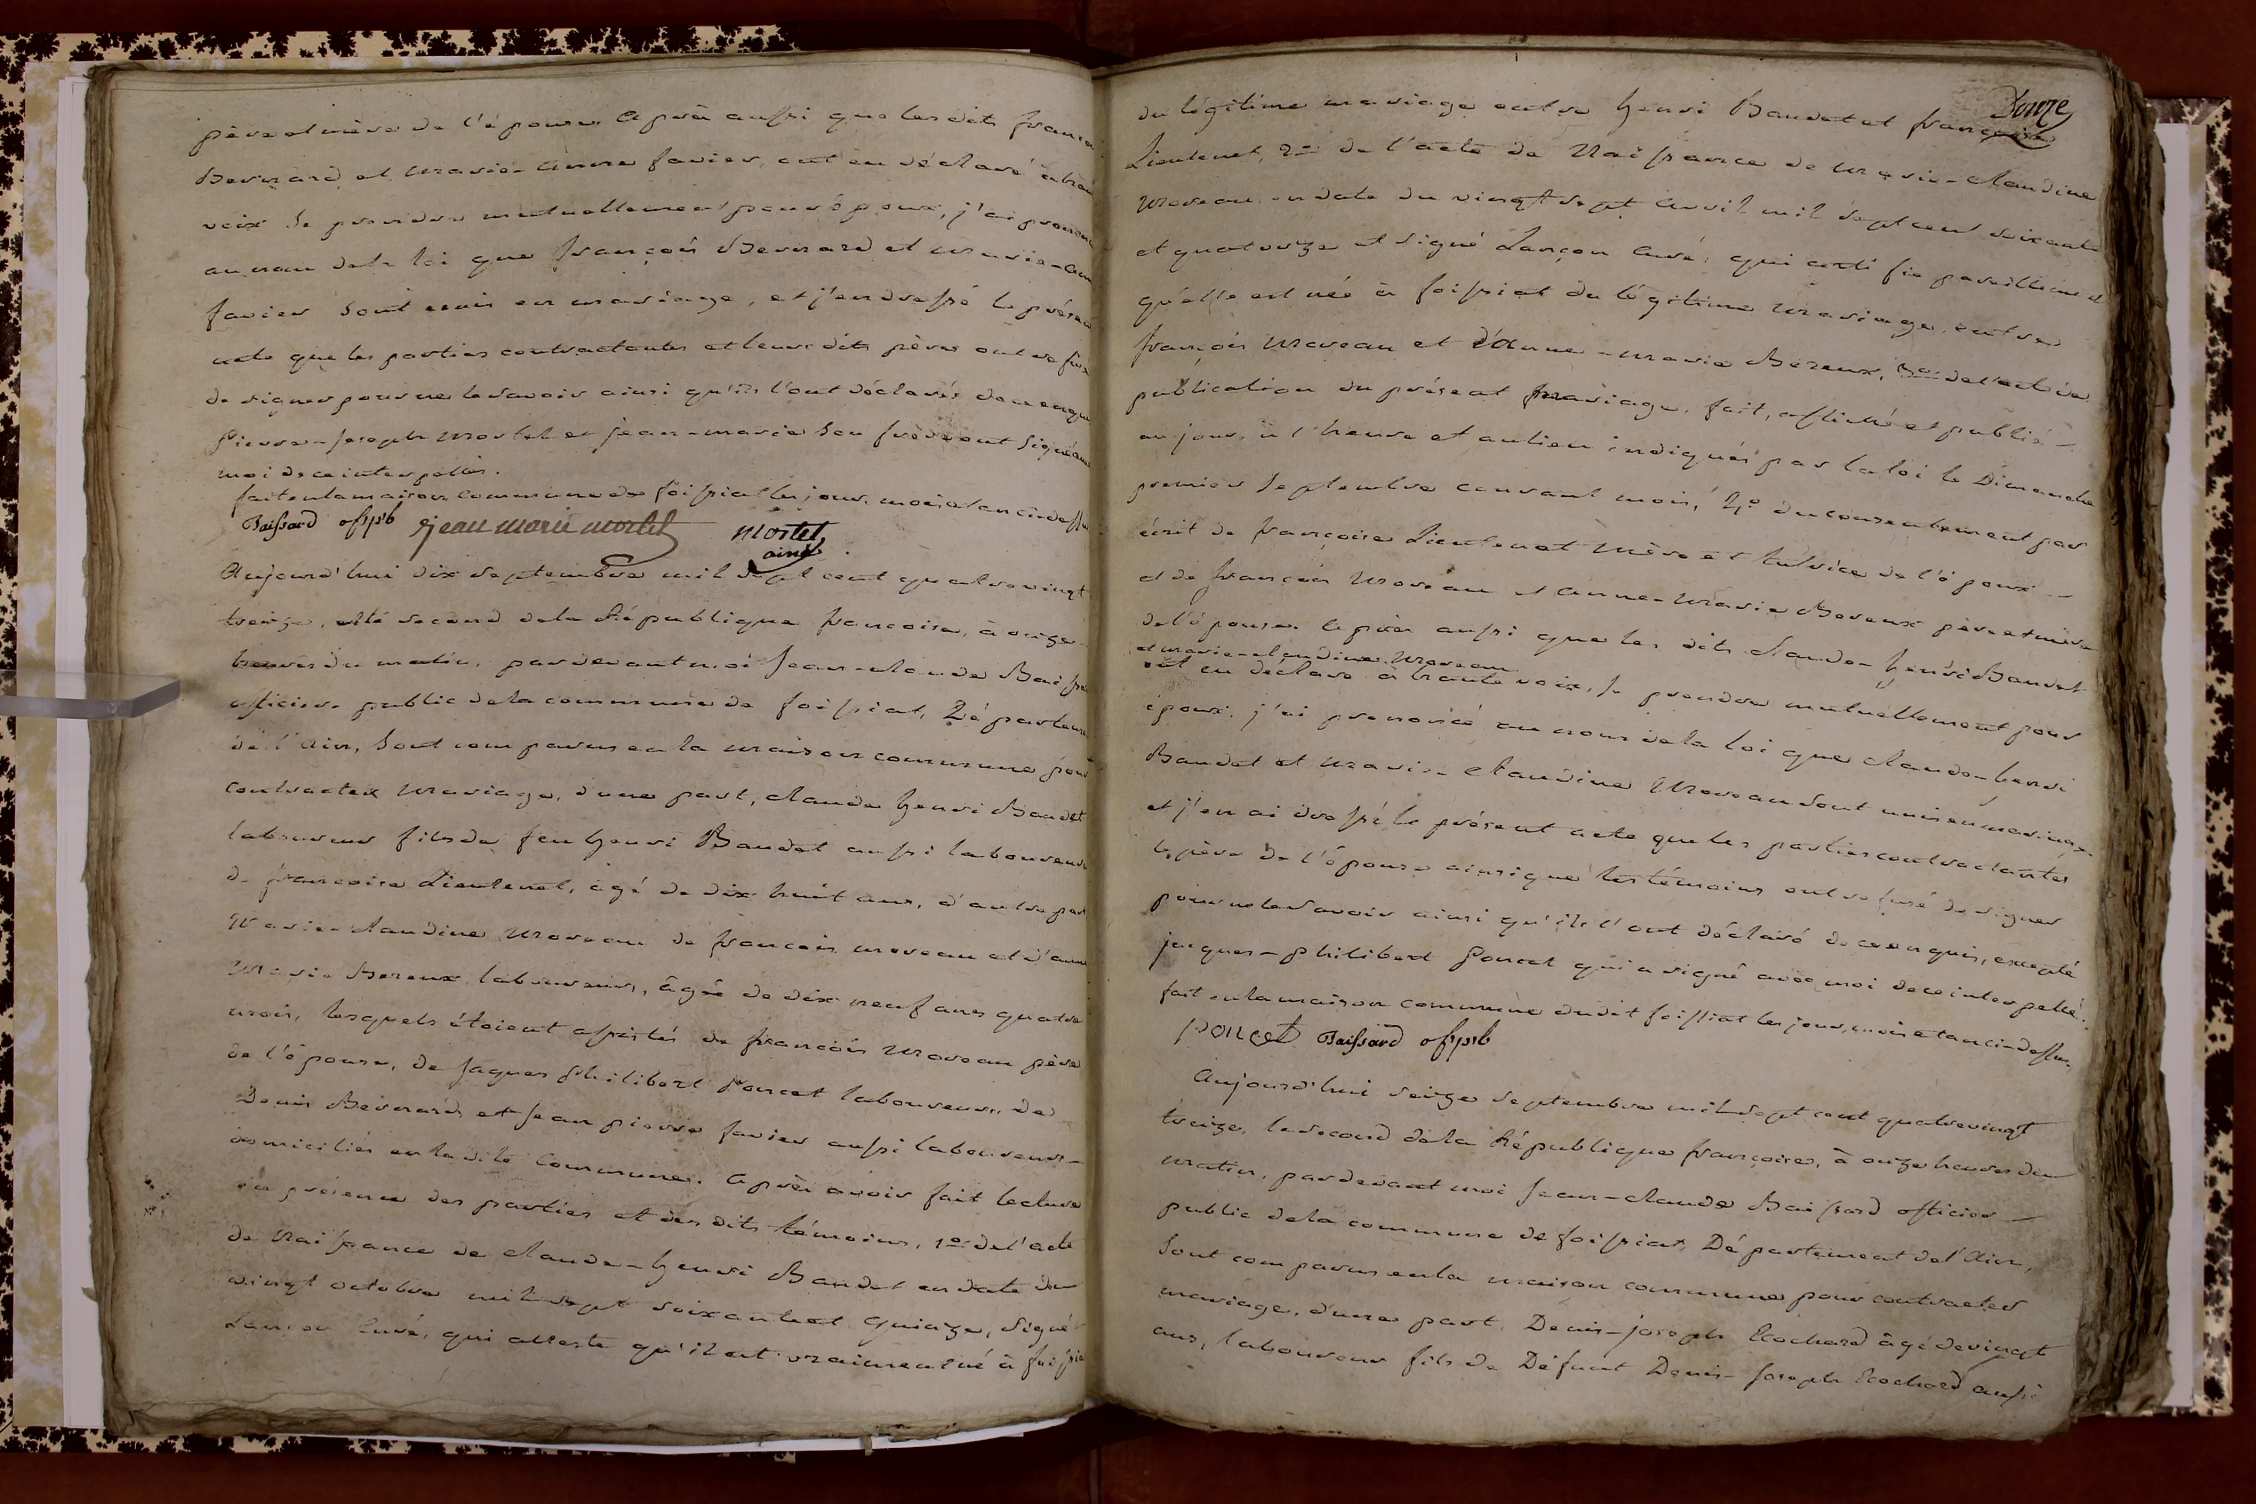 père et mère de l'épouse. Après aussi que les dits françois
Bernard et marie-Anne favier, ont eu déclaré à haute
voix se prendre mutuellement pour époux, j'ai prononcé
au nom de la loi que françois Bernard et marie-Anne
favier sont unis en mariage, et j'en dressé le présent
acte que les parties contractantes et leurs dits pères ont refusé
de signer pour ne le savoir ainsi qu'ils l'ont déclarés de ce enquis
Pierre-Joseph Mortel et jean-marie son frère ont signé avec
moi de ce interpellés.
fait en la maison commune de foissiat les jour, mois et an ci-dessus
Baissard off pb jean marie mortel mortel
ainé
Aujourd'hui dix septembre mil sept cent quatre vingt
treize, été second de la République françoise, à onze
heures du matin, pardevant moi Jean-claude Baissard
officier public de la commune de foissiat, Département
de l'Ain, sont comparus en la maison commune pour
contracter mariage, d'une part, claude henri Baudet
laboureur fils de feu henri Baudet aussi laboureur
de françoise Lieutenet, âgé de dix huit ans, d'autre part
Marie-claudine Moreau de francois moreau et d'anne
Marie Bereux, laboureurs, âgée de dix neuf ans quatre
mois, lesquels étoient assistés de françois Moreau père
de l'épouse, de Jaques Philibert Poncet laboureur, de
Denis Bernard, et Jean pierre favier aussi laboureurs
domiciliés en la dite Commune. Après avoir fait lecture
en présence des parties et des dits témoins, 1o de l'acte
de Naissance de claude-henri Baudet en date du
vingt octobre mil sept soixante et quinze, signé
Lançon Curé, qui atteste qu'il est vraiment né à foissiat
Douze
du légitime mariage entre henri Baudet et françoise
Lieutenet, 2o de l'acte de Naissance de marie-claudine
Moreau en date du vingt sept avril mil sept cent soixante
et quatorze et signé Lançon Curé, qui certifie pareillement
qu'elle est née à foissiat du légitime mariage entre
françois Moreau et d'Anne-marie Bereux, 3o de l'acte de
publication du présent mariage, fait, affiché et publié
au jour, à l'heure et au lieu indiqués par la loi le Dimanche
premier septembre courant mois, 4o du consentement par
écrit de françoise Lieutenet mère et tutrice de l'époux
et de françois Moreau et Anne-Marie Bereux père et mère
de l'épouse. Après aussi que les dits claude-henri Baudet
et marie-claudine Moreau
ont eu déclaré à haute voix, se prendre mutuellement pour
époux, j'ai prononcé au nom de la loi que claude-henri
Baudet et Marie-claudine Moreau sont unis en mariage
et j'en ai dressé le présent acte que les parties contractantes
le père de l'épouse ainsi que les témoins ont refusé de signer
pour ne le savoir ainsi qu'ils l'ont déclaré de ce enquis, excepté
jacques-philibert Poncet qui a signé avec moi de ce interpellé.
fait en la maison commune dudit foissiat les jour, mois et an ci-dessus.
poncet Baissard off pb
Aujourd'hui seize septembre mil sept cent quatre vingt
treize, le second de la République françoise, à onze heures du
matin, pardevant moi Jean-claude Baissard officier
public de la commune de foissiat, Département de l'Ain,
sont comparus en la maison commune pour contracter
mariage, d'une part, Denis-joseph Ecochard âgé de vingt
ans, laboureur fils de Défunt Denis-Joseph Ecochard aussi